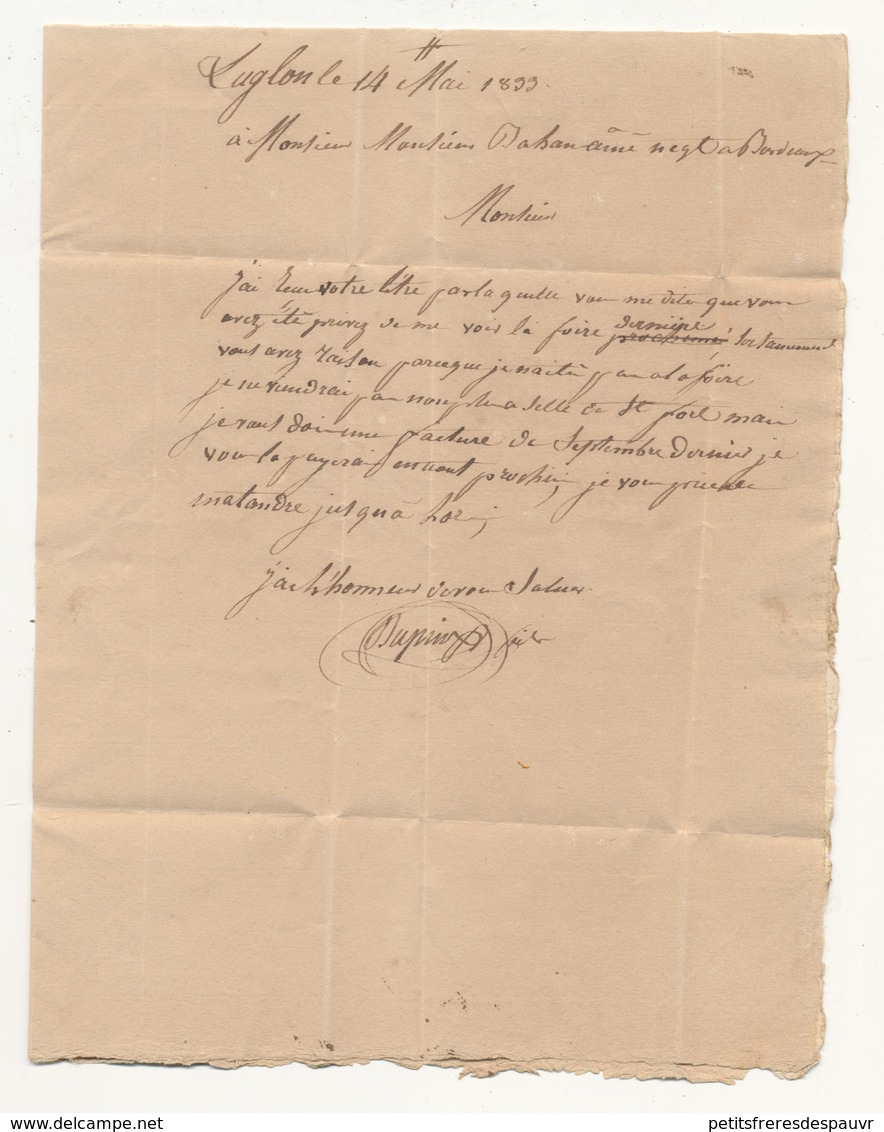 Luglon le 14 Mai 1833.
à Monsieur Monsieur Dahan ainé negt a Bordeaux
Monsieur
j'ai recu votre lettre par laquelle vous me dites que vous
avez été privez de me voir la foire prochene derniere sertennement
vous avez raison parceque je naité pas a la foire
je ne viendrai pas non plus a selle de St fort mais
je vous dois une facture de Septembre dernier je
vous la payerai en aout prochin, je vous prie de
matandre jusqu'a lors,
j'ai l'honneur de vous Saluer